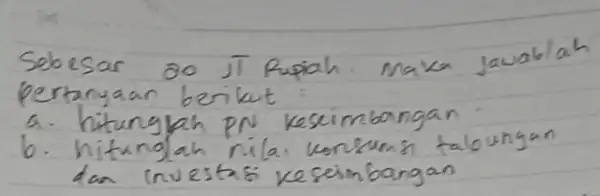 Sebesar 80 JT Rupiah. Maka Jawablah
pertanyaan berikut :
a. hitunglah PN keseimbangan
b. hitunglah nilai konsumsi tabungan
dan investasi keseimbangan